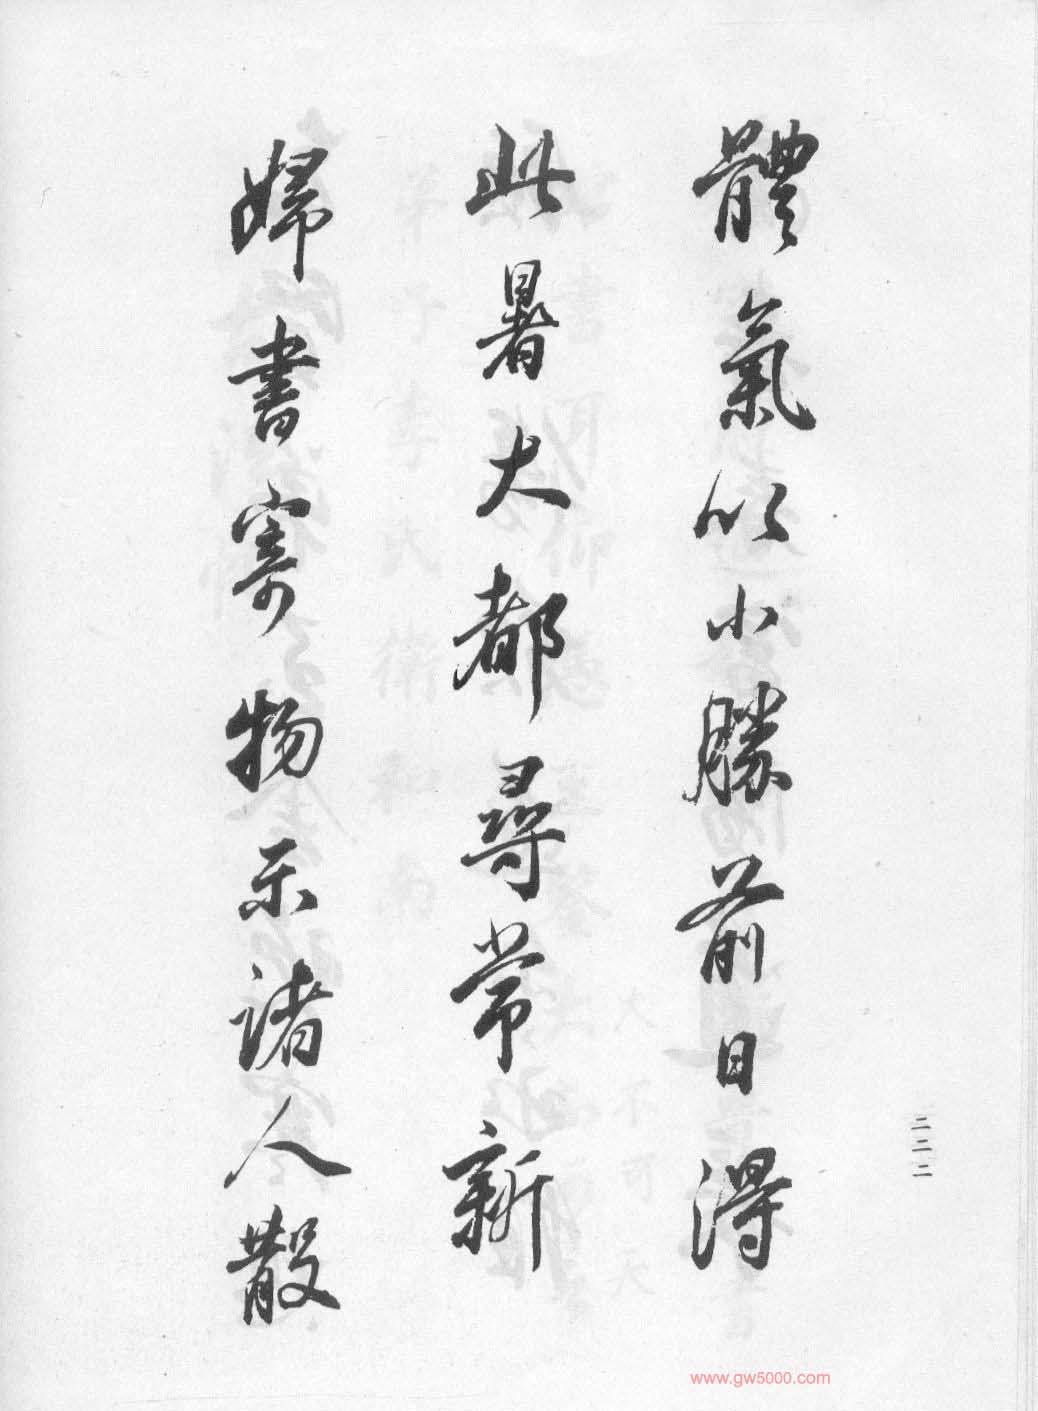 體氣以小勝前日得
此暑大都尋常新
婦書寄物示諸人散
二二二
www.gw5000.com